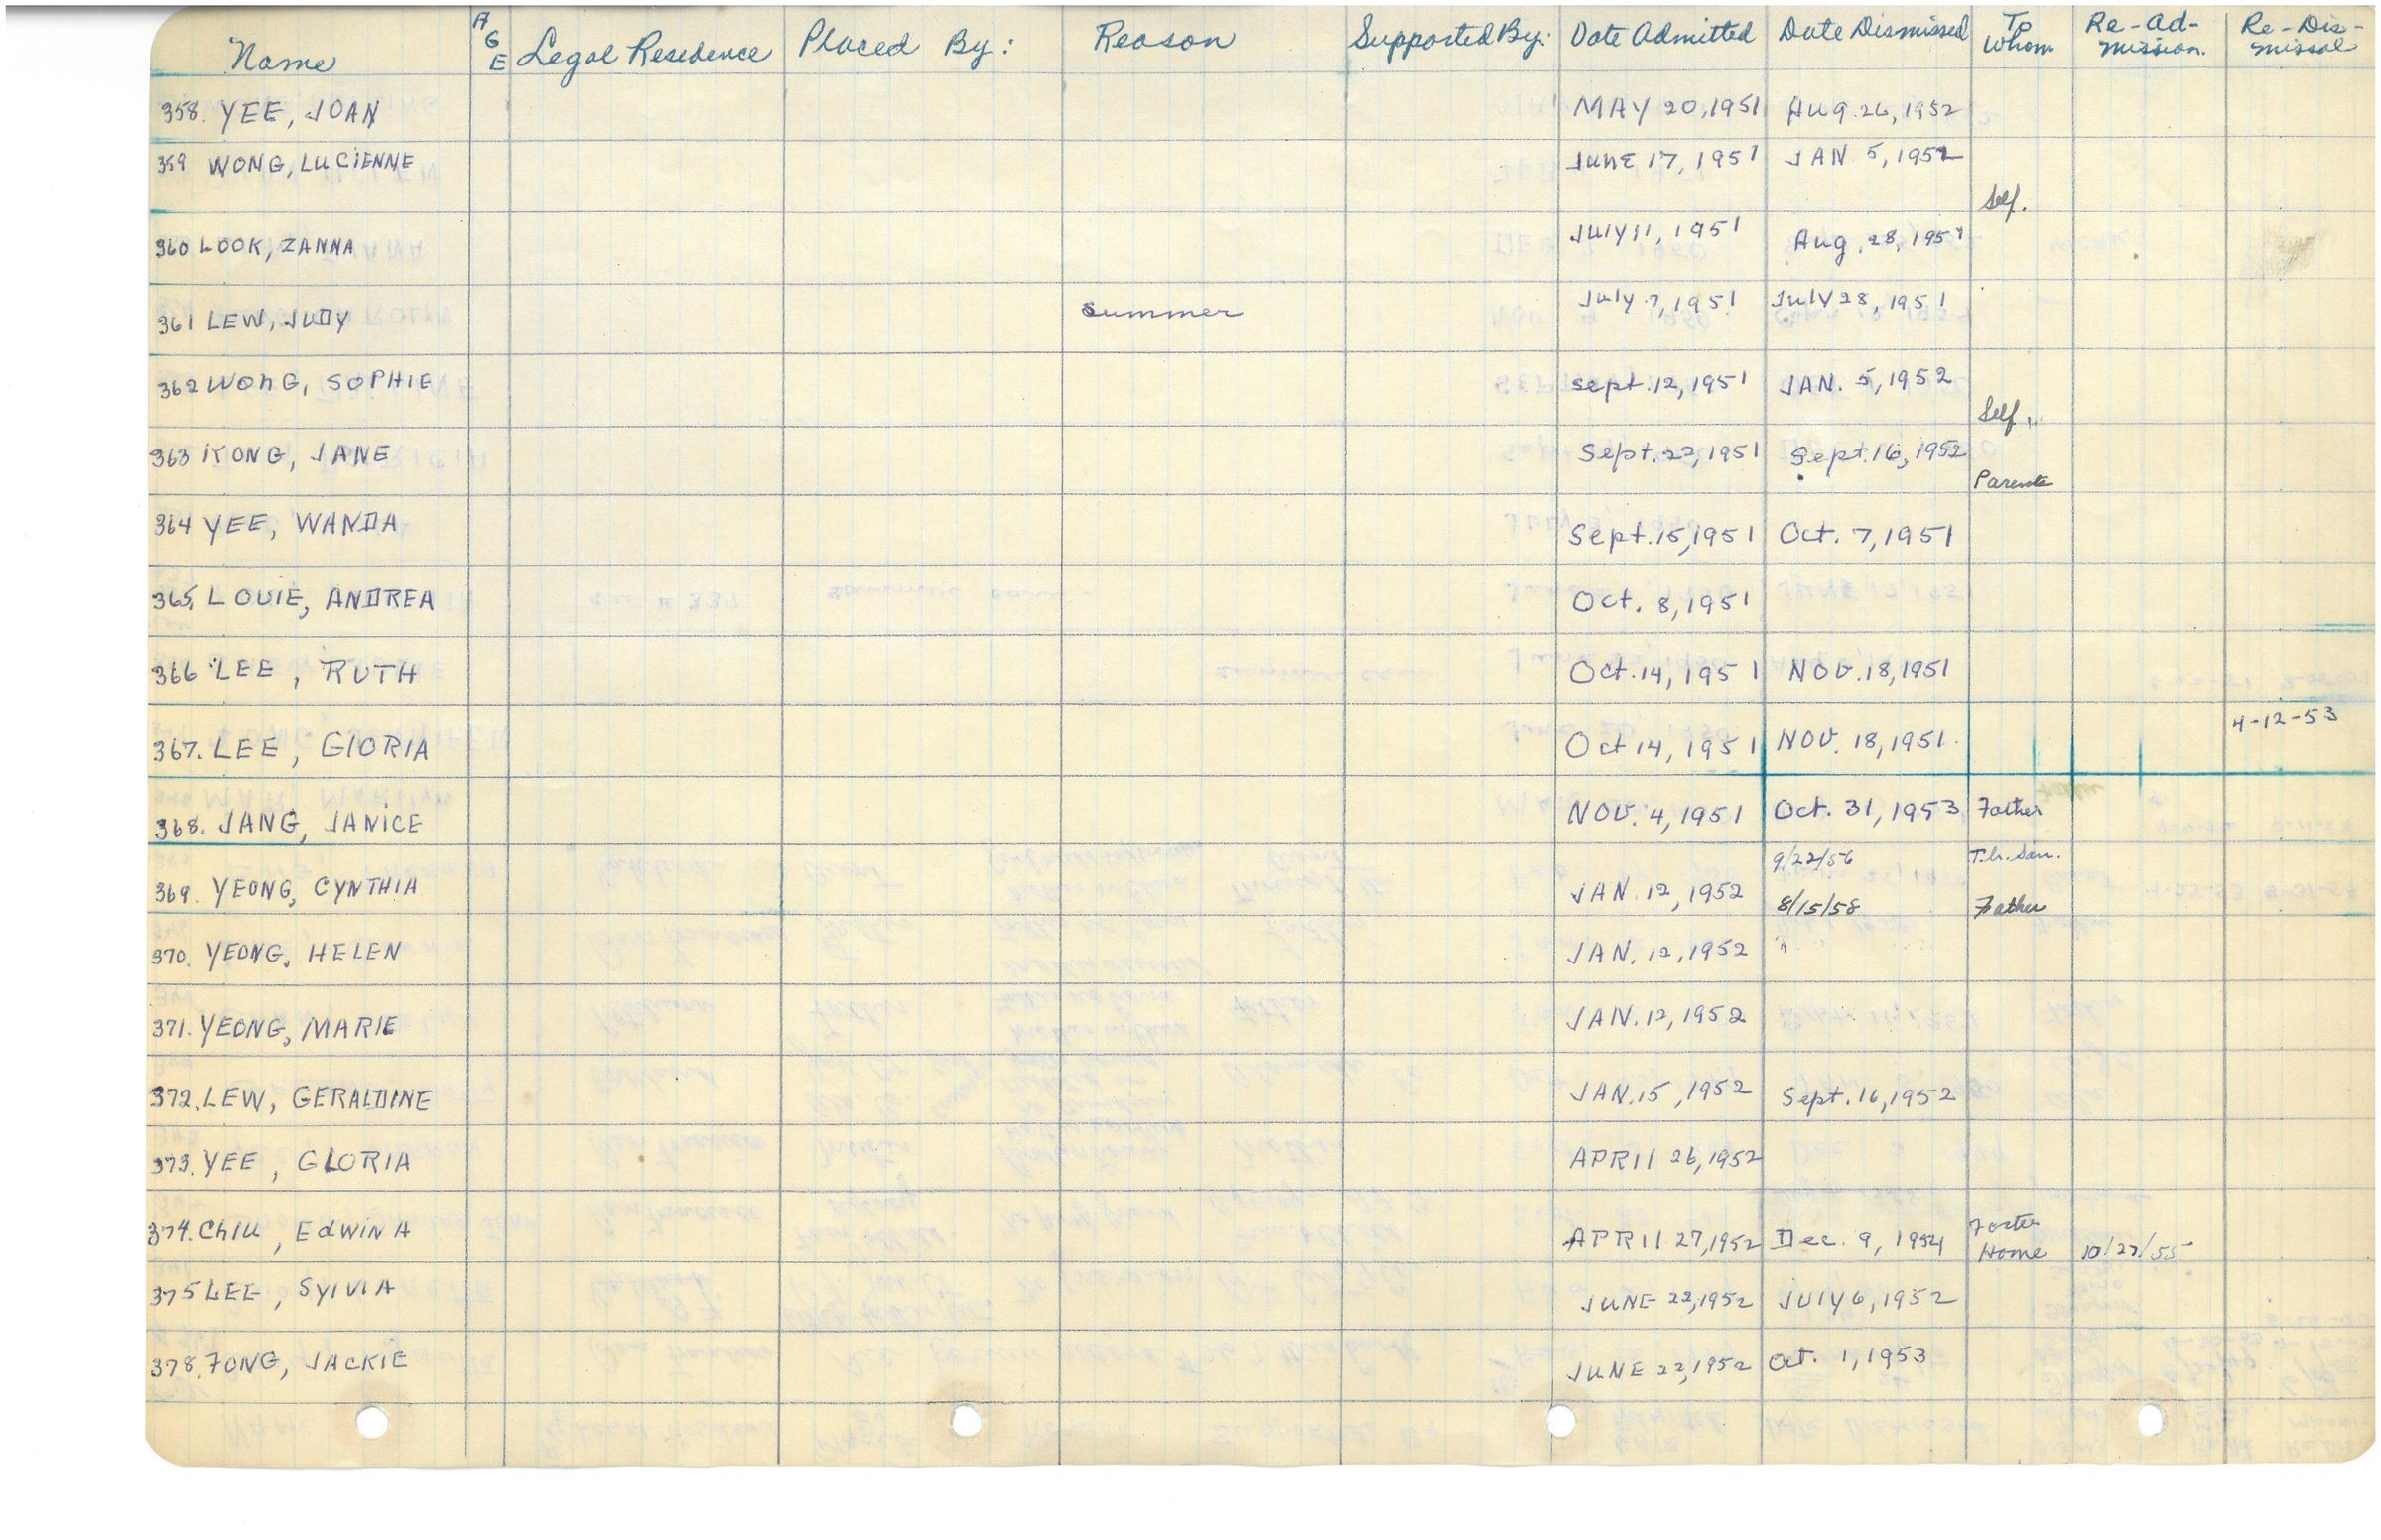 Name AGE Legal Resedence Placed By: Reason Supported By: Date Admitted Date Dismissed To Whom Re-Ad-mission. Re-Dis-missal
358. YEE, JOAN MAY 20, 1951 Aug. 26, 1952
359 WONG, LUCIENNE JUNE 17, 1951 JAN 5, 1952 Self.
360 LOOK, ZANNA JULY 11, 1951 Aug. 28, 1951
361 LEW, JUDY Summer July 7, 1951 July 28, 1951
362 WONG, SOPHIE Sept. 12, 1951 JAN. 5, 1952 Self
363 KONG, JANE Sept. 22, 1951 Sept. 16, 1952 Parents
364 YEE, WANDA Sept. 15, 1951 Oct. 7, 1951
365. LOUIE, ANDREA Oct. 8, 1951
366 LEE, RUTH Oct. 14, 1951 NOV. 18, 1951
367. LEE, GLORIA Oct 14, 1951 NOV. 18, 1951. 4-12-53
368. JANG, JANICE NOV. 4, 1951 Oct. 31, 1953 Father
9/22/56 T.b. San.
369. YEONG, CYNTHIA JAN. 12, 1952 8/15/58 Father
370. YEONG, HELEN JAN. 12, 1952 "
371. YEONG, MARIE JAN. 12, 1952
372. LEW, GERALDINE JAN. 15, 1952 Sept. 16, 1952
373. YEE, GLORIA APRIL 26, 1952
374. CHIU, EDWINA APRIL 27, 1952 Dec. 9, 1954 Foster Home 10/27/55
375 LEE, SYLVIA JUNE 22, 1952 JULY 6, 1952
378. FONG, JACKIE JUNE 22, 1952 Oct. 1, 1953